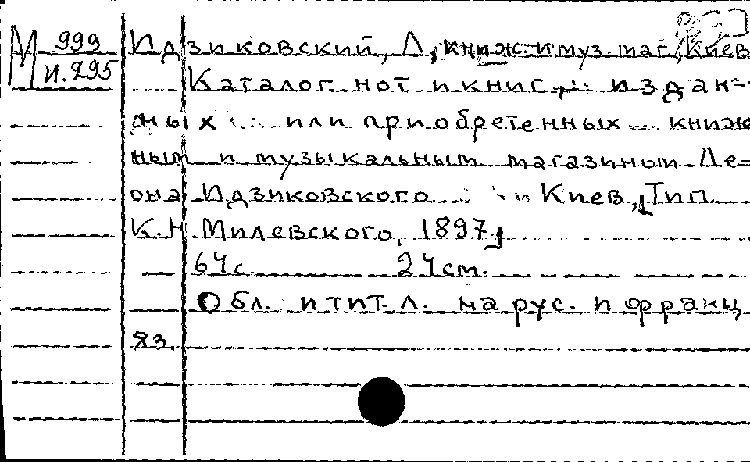 М 999
И.295
Идзиковский, Л, книж. и муз. маг, Киев
Каталог нот и книг, издан-
ных или приобретенных книж
ным и музыкальным магазином Ле=
она Идзиковского Киев, Тип
К.Н Милевского, 1897
64с 24см.
Обл. и тит. л. на рус. и франц
яз.